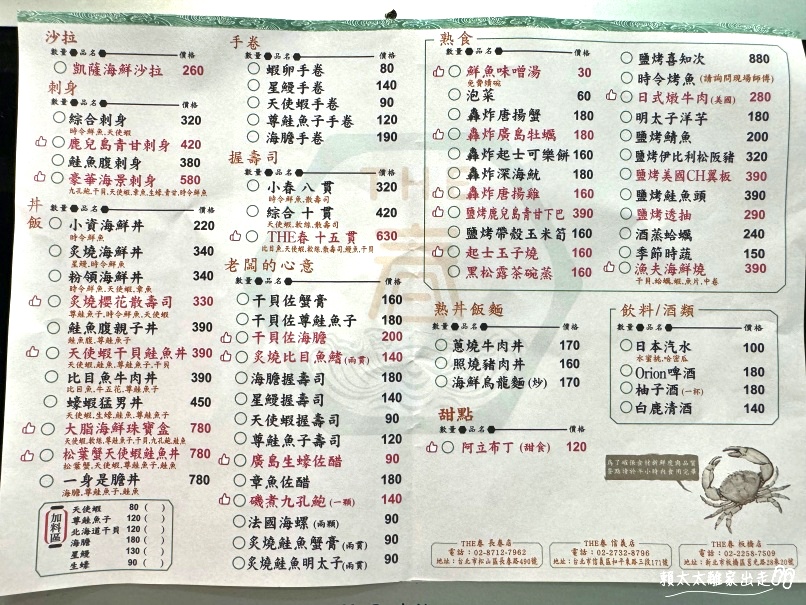 沙拉
數量 品名 價格
凱薩海鮮沙拉 260
刺身
數量 品名 價格
綜合刺身 320
時令鮮魚,天使蝦
鹿兒島青甘刺身 420
鮭魚腹刺身 380
豪華海景刺身 580
九孔鮑,干貝,天使蝦,章魚,生蠔,青甘,時令鮮魚
丼飯
數量 品名 價格
小資海鮮丼 220
時令鮮魚
炙燒海鮮丼 340
星鰻,時令鮮魚
粉領海鮮丼 340
時令鮮魚,天使蝦,章魚
炙燒櫻花散壽司 330
尊鮭魚子,時令鮮魚,天使蝦
鮭魚腹親子丼 390
鮭魚腹,尊鮭魚子
天使蝦干貝鮭魚丼 390
天使蝦,鮭魚,尊鮭魚子,干貝
比目魚牛肉丼 390
比目魚,牛五花,尊鮭魚子
蠔蝦猛男丼 450
天使蝦,生蠔,鮭魚,尊鮭魚子
大脂海鮮珠寶盒 780
天使蝦,軟絲,尊鮭魚子,干貝,九孔鮑,鮭魚
松葉蟹天使蝦鮭魚丼 780
松葉蟹,天使蝦,尊鮭魚子,鮭魚
一身是膽丼 780
海膽,尊鮭魚子,鮭魚
加料區
天使蝦 80 ( )
尊鮭魚子 120 ( )
北海道干貝 120 ( )
海膽 180 ( )
星鰻 130 ( )
生蠔 90 ( )
手卷
數量 品名 價格
蝦卵手卷 80
星鰻手卷 140
天使蝦手卷 90
尊鮭魚子手卷 120
海膽手卷 190
握壽司
數量 品名 價格
小春 八 貫 320
時令鮮魚,散壽司
綜合 十 貫 420
天使蝦,軟絲,散壽司
THE春 十五 貫 630
比目魚,天使蝦,軟絲,散壽司,鰻魚,干貝
老闆的心意
數量 品名 價格
干貝佐蟹膏 160
干貝佐尊鮭魚子 180
干貝佐海膽 200
炙燒比目魚鰭(兩貫) 140
海膽握壽司 180
星鰻握壽司 140
天使蝦握壽司 90
尊鮭魚子壽司 120
廣島生蠔佐醋 90
章魚佐醋 180
磯煮九孔鮑 (一顆) 140
法國海螺 (兩顆) 90
炙燒鮭魚蟹膏 (兩貫) 90
炙燒鮭魚明太子(兩貫) 90
熟食
數量 品名 價格
鮮魚味噌湯 30
免費續碗
泡菜 60
轟炸唐揚蟹 180
轟炸廣島牡蠣 180
轟炸起士可樂餅 160
轟炸深海魷 180
轟炸唐揚雞 160
鹽烤鹿兒島青甘下巴 390
鹽烤帶殼玉米筍 160
起士玉子燒 160
黑松露茶碗蒸 160
鹽烤喜知次 880
時令烤魚 (請詢問現場師傅)
日式燉牛肉(美國) 280
明太子洋芋 180
鹽烤鯖魚 200
鹽烤伊比利松阪豬 320
鹽烤美國CH翼板 390
鹽烤鮭魚頭 390
鹽烤透抽 290
酒蒸蛤蠣 240
季節時蔬 150
漁夫海鮮燒 390
干貝,蛤蠣,蝦,魚片,中卷
熟丼飯麵
數量 品名 價格
蔥燒牛肉丼 170
照燒豬肉丼 160
海鮮烏龍麵(炒) 170
甜點
數量 品名 價格
阿立布丁 (甜食) 120
飲料/酒類
數量 品名 價格
日本汽水 100
水蜜桃,哈密瓜
Orion啤酒 180
柚子酒 (一杯) 180
白鹿清酒 140
為了確保食材新鮮度與品質
餐點請於半小時內食用完畢
THE春 長春店
電話：02-8712-7962
地址：台北市松山區長春路490號
THE春 信義店
電話：02-2732-8796
地址：台北市信義區和平東路三段171號
THE春 板橋店
電話：02-2258-7509
地址：新北市板橋區莒光路28巷20號
THE春
賴太太離家出走